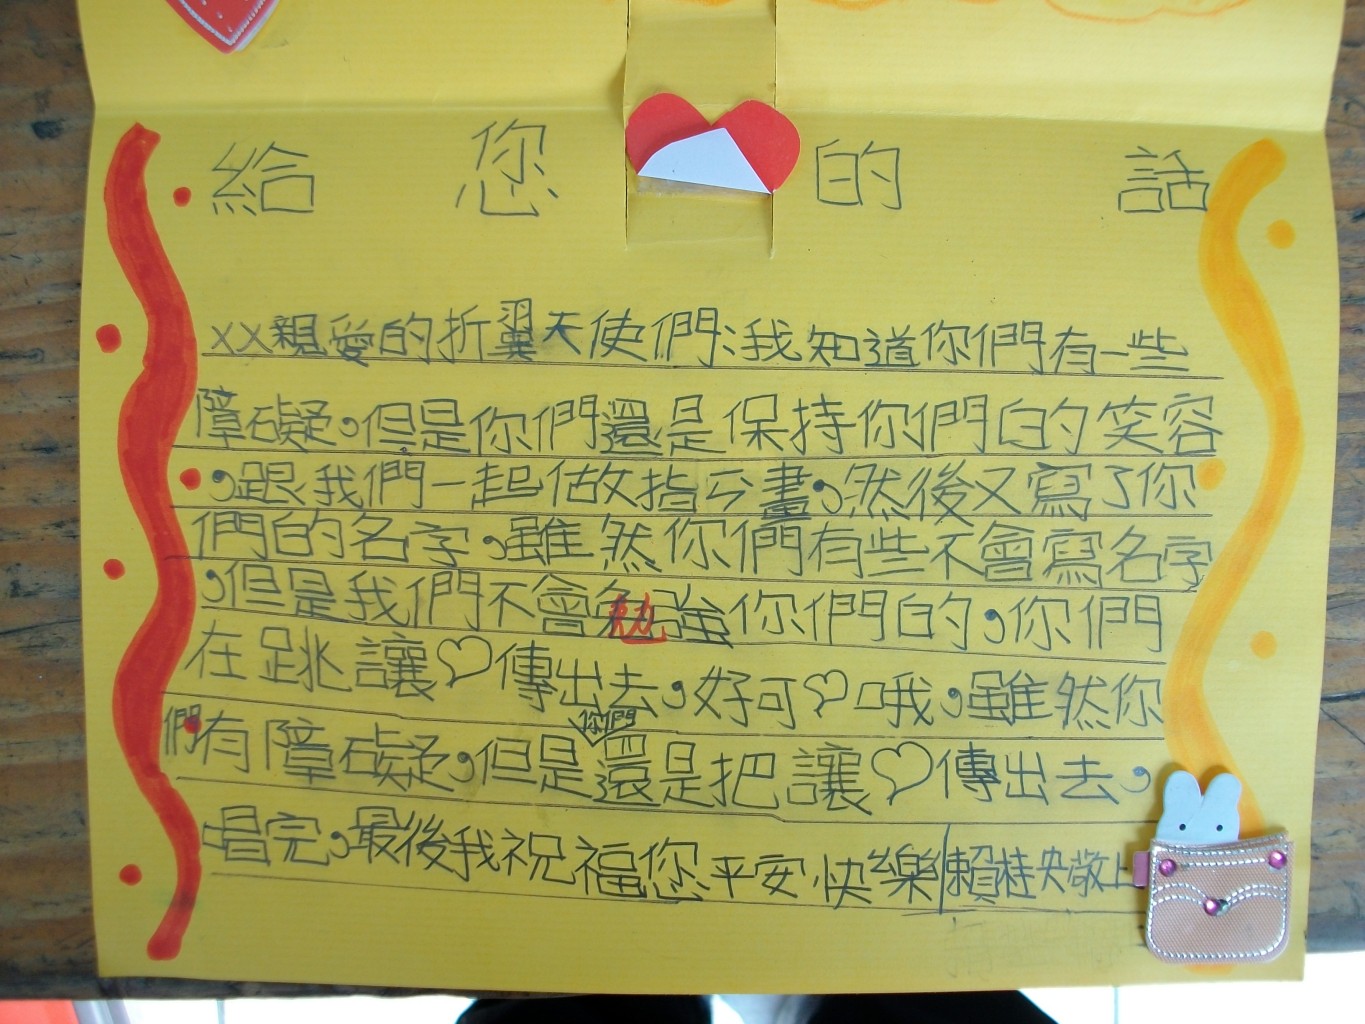 給您的話
XX親愛的折翼天使們:我知道你們有一些
障礙,但是你們還是保持你們的笑容
,跟我們一起做指云畫,然後又寫了你
們的名字,雖然你們有些不會寫名字
,但是我們不會勉強你們的,你們
在跳讓♡傳出去,好可♡哦,雖然你
們有障礙,但是你們還是把讓♡傳出去,
唱完,最後我祝福您平安快樂 賴桂央敬上